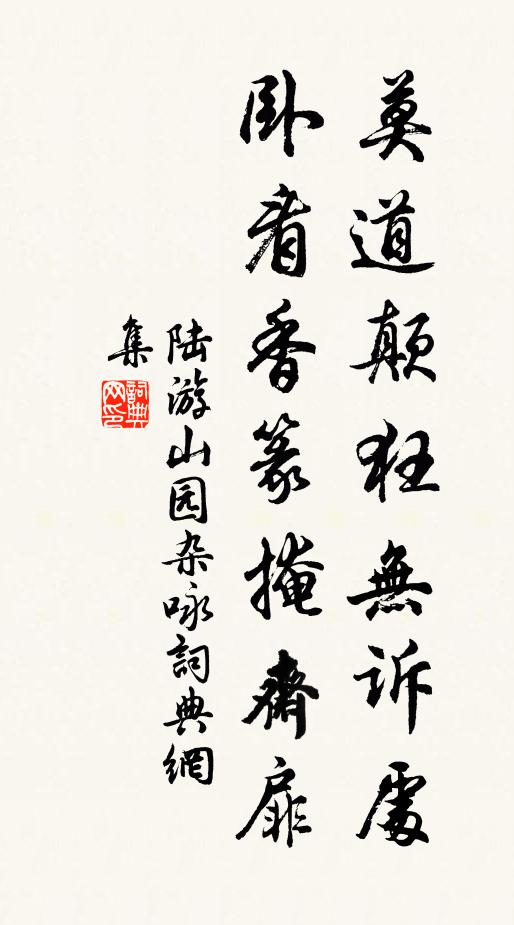 莫道颠狂無訴處
卧看香篆掩齋扉
陆游山园杂咏詞典網
集
詞典
网印